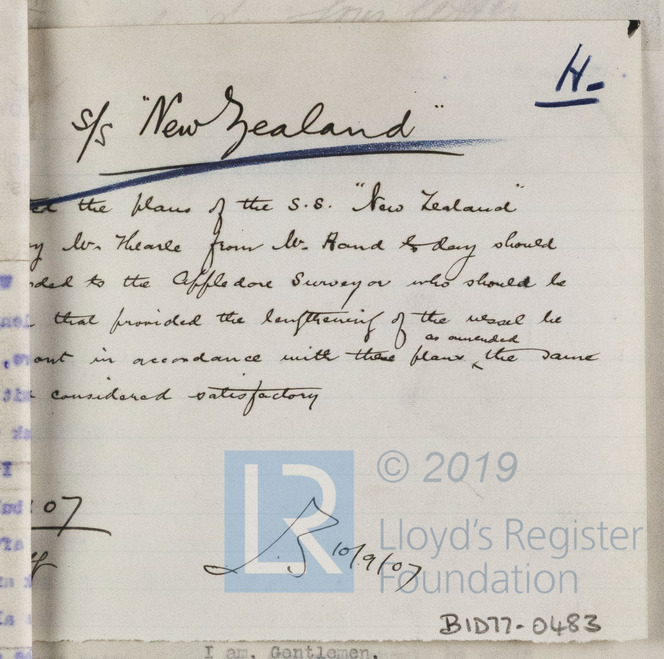 H.
s/s "New Zealand"
the plans of the S.S. "New Zealand"
Mr. Hearle from Mr. Rand to day should
to the Appledore Surveyor who should be
that provided the lengthening of the vessel be
as amended
out in accordance with these plans the same
considered satisfactory
© 2019
LR
Lloyd's Register
Foundation
07
10/9/07
BID77-0483
I am, Gentlemen,